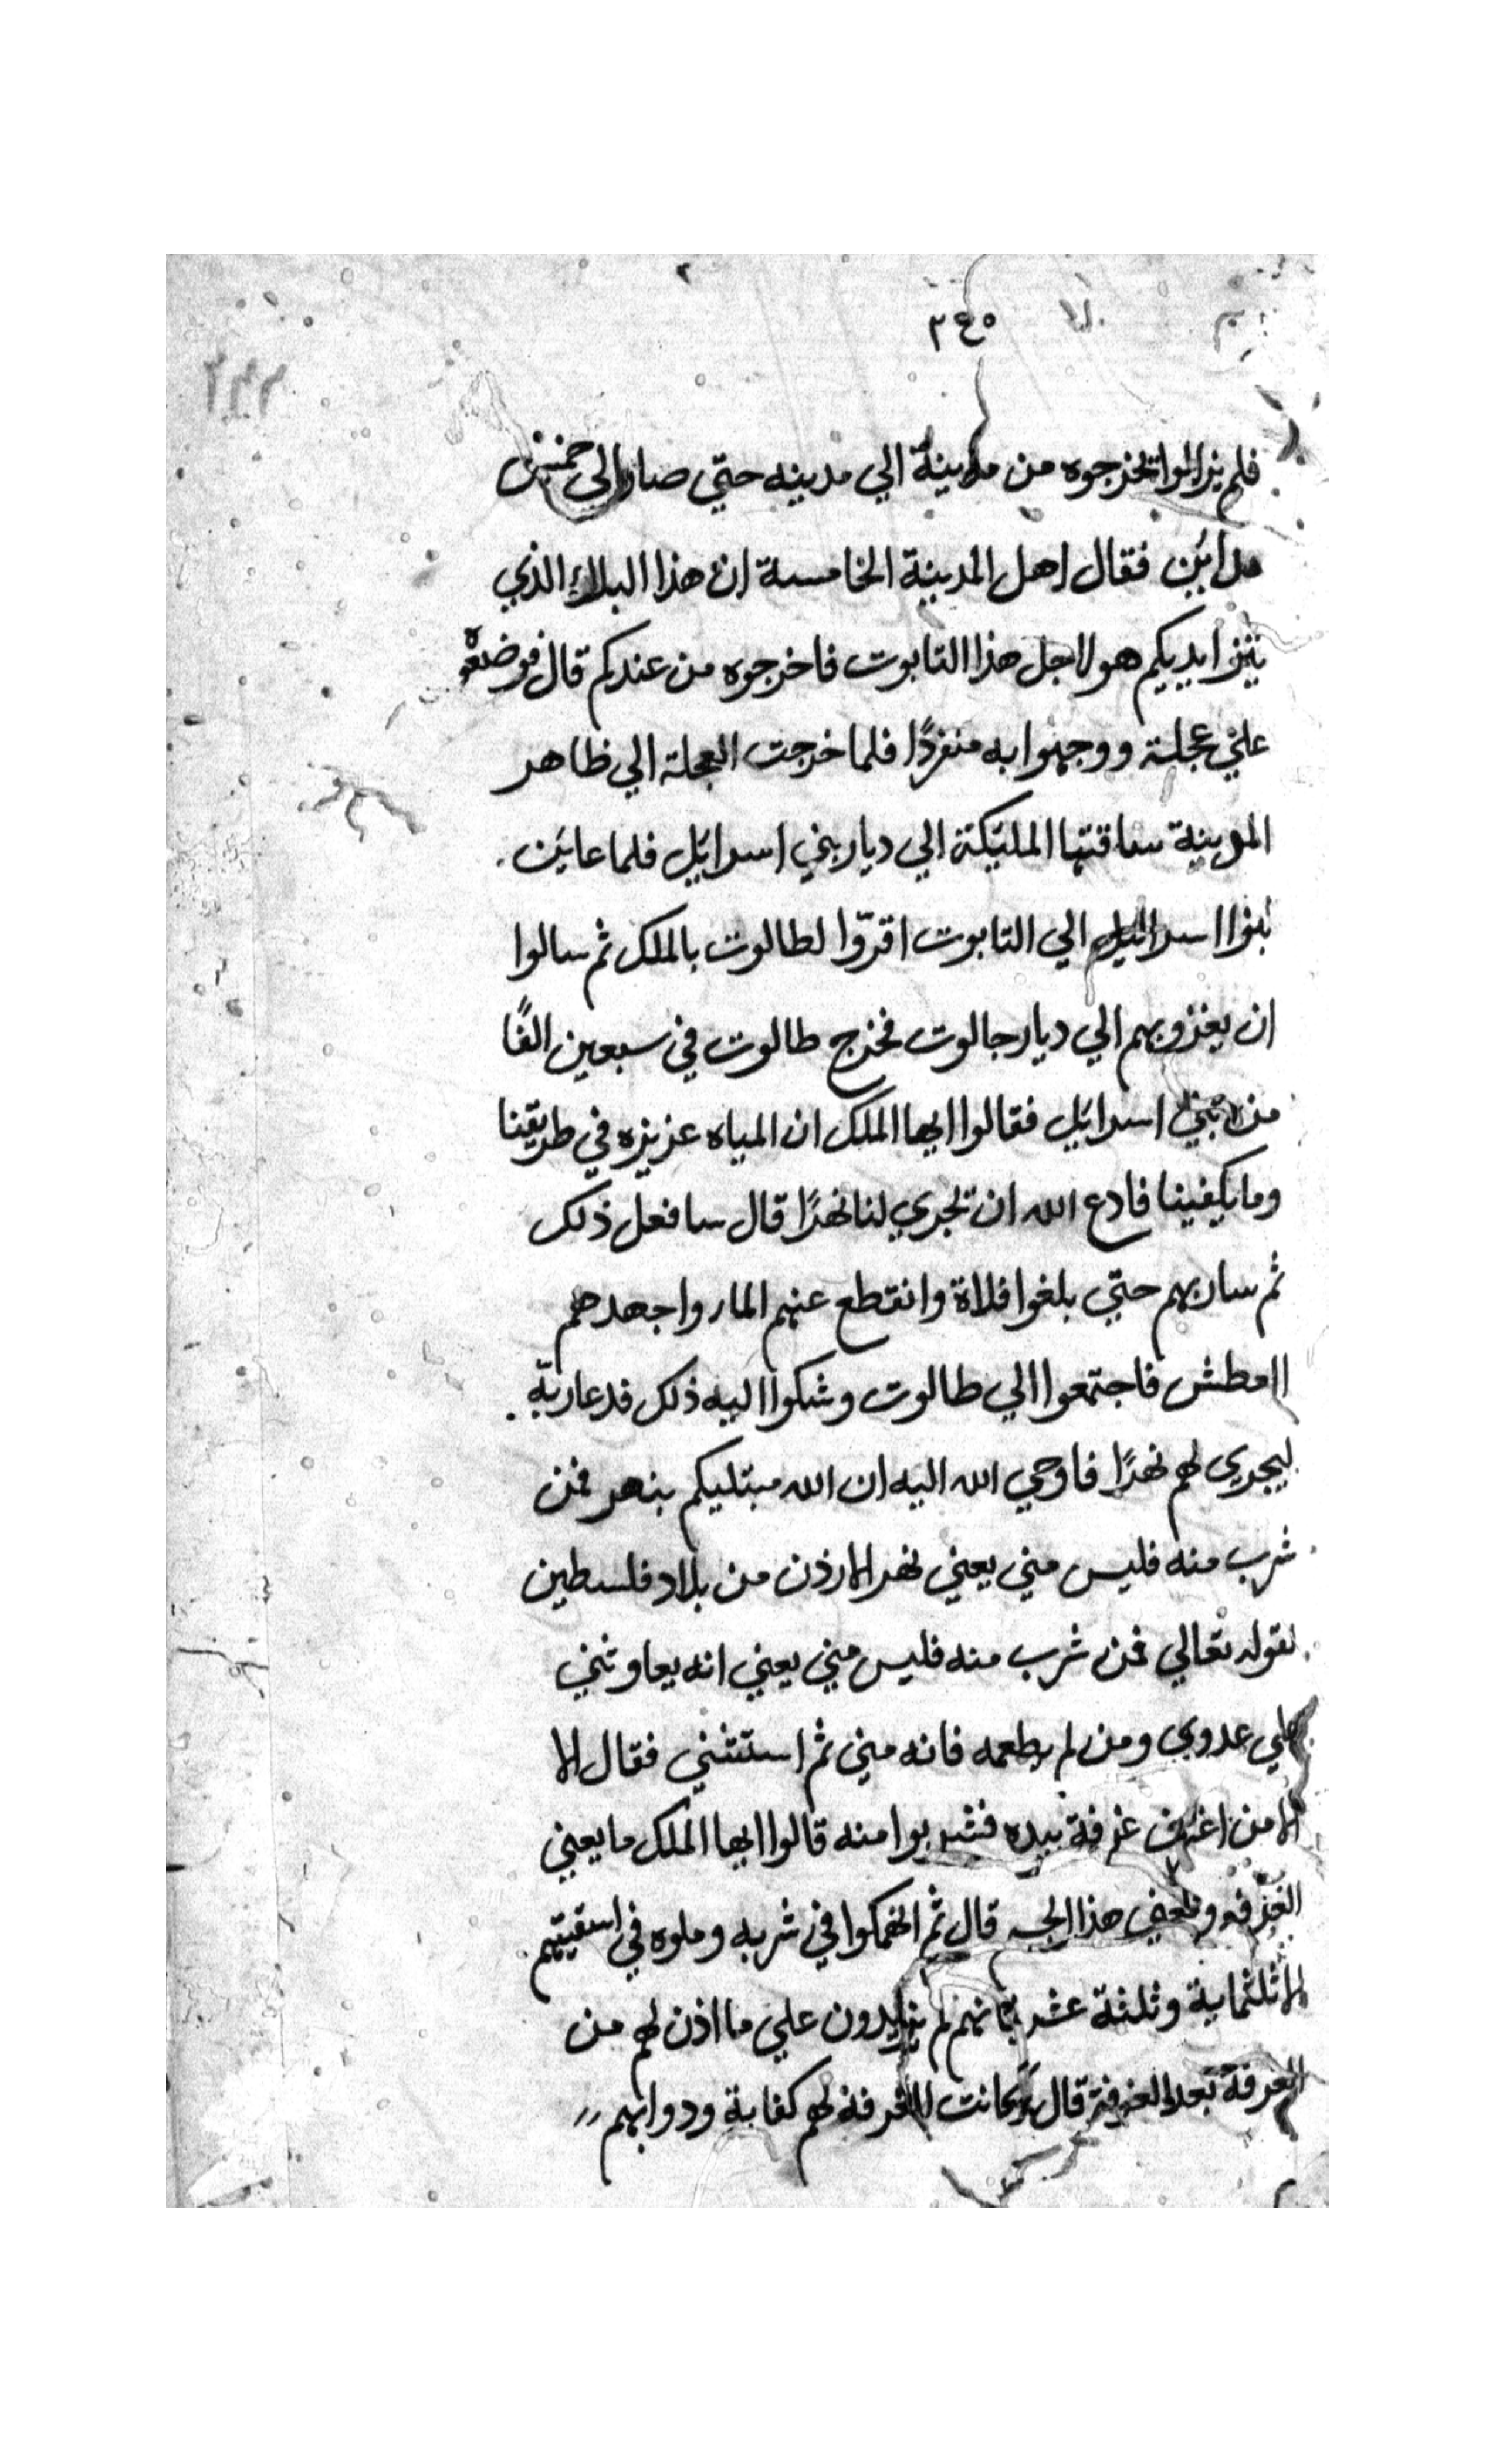 ٢٤٥
فلم يزالوا يخرجوه من مدينة الي مدينه حتي صار الي خمس
مداين فقال اهل المدينة الخامسة ان هذا البلاء الذي
ايديكم هو لاجل هذا التابوت فاخرجوه من عندكم قال فوضعوه
علي عجلة ووجهوا به منفردًا فلما خرجت العجلة الي ظاهر
المدينة ساقتها المليكة الي ديار بني اسرايل فلما عاين
بنوا اسرائيل الي التابوت اقرّوا لطالوت بالملك ثم سالوا
ان يغزو بهم الي ديار جالوت فخرج طالوت في سبعين الفًا
من بني اسرايل فقالوا ايها الملك ان المياه عزيزه في طريقنا
وما يكفينا فادع الله ان يجري لنا نهرًا قال سافعل ذلك
ثم سار بهم حتي بلغوا فلاة وانقطع عنهم الماء واجهدهم
العطش فاجتمعوا الي طالوت وشكوا اليه ذلك فدعا ربّه
ليجري لهم نهرًا فاوحي الله اليه ان الله مبتليكم بنهر فمن
شرب منه فليس مني يعني نهر الارذن من بلاد فلسطين
لقوله تعالي فمن شرب منه فليس مني يعني انه يعاونني
علي عدوي ومن لم يطعمه فانه مني ثم استثني فقال الا
الا من اغترف غرفة بيده فشربوا منه قالوا ايها الملك ما يعني
الغرفه هذا قال ثم انهمكوا في شربه وملوه في اسقيتهم
الا ثلثماية وثلثة عشر فانهم لم يزيدون علي ما اذن لهم من
الغرفة بعد الغرفة قال وكانت الغرفة لهم كفاية ودوابهم